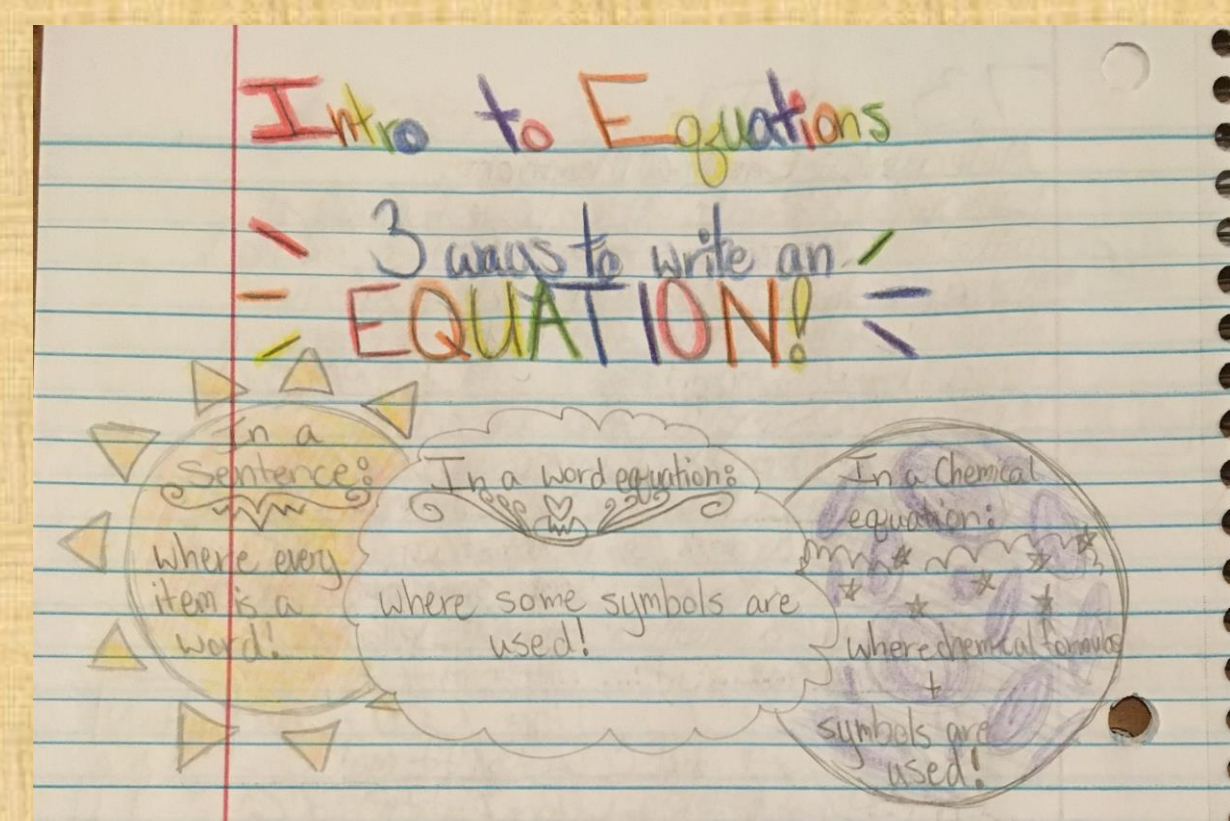 Intro to Equations
3 ways to write an
EQUATION!
In a
Sentence:
where every
item is a
word!
In a word equation:
where some symbols are
used!
In a Chemical
equation:
where chemical formulas
+
symbols are
used!